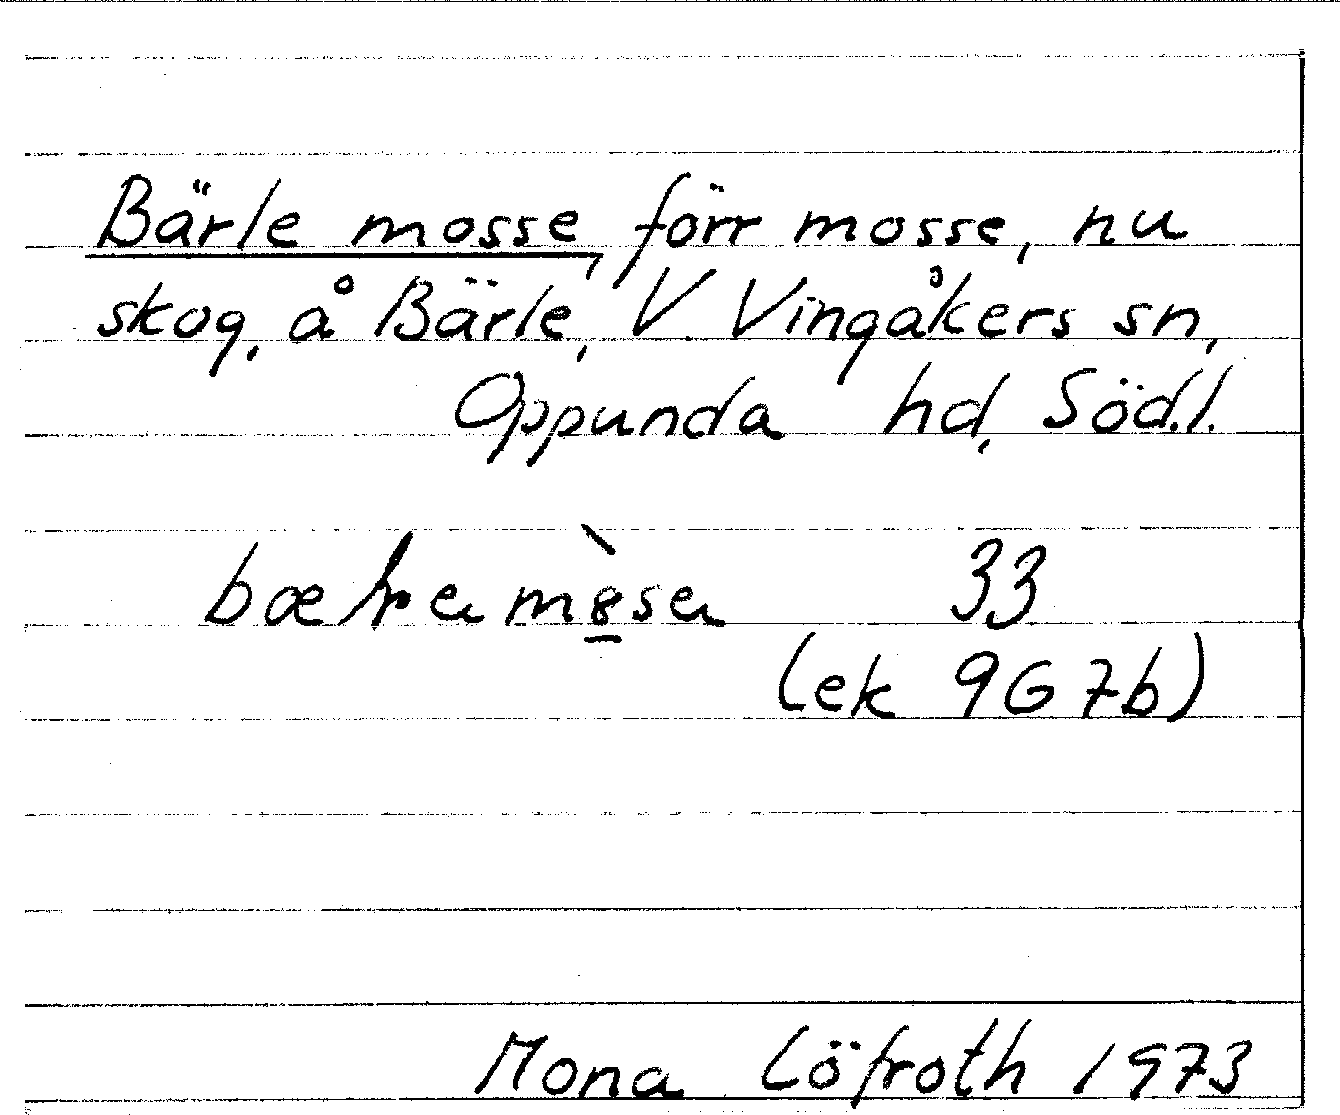 Bärle mosse, förr mosse, nu
skog, å Bärle, V. Vingåkers sn,
Oppunda hd, Södl.
33
(ek 9G 7b)
Mona Löfroth 1973